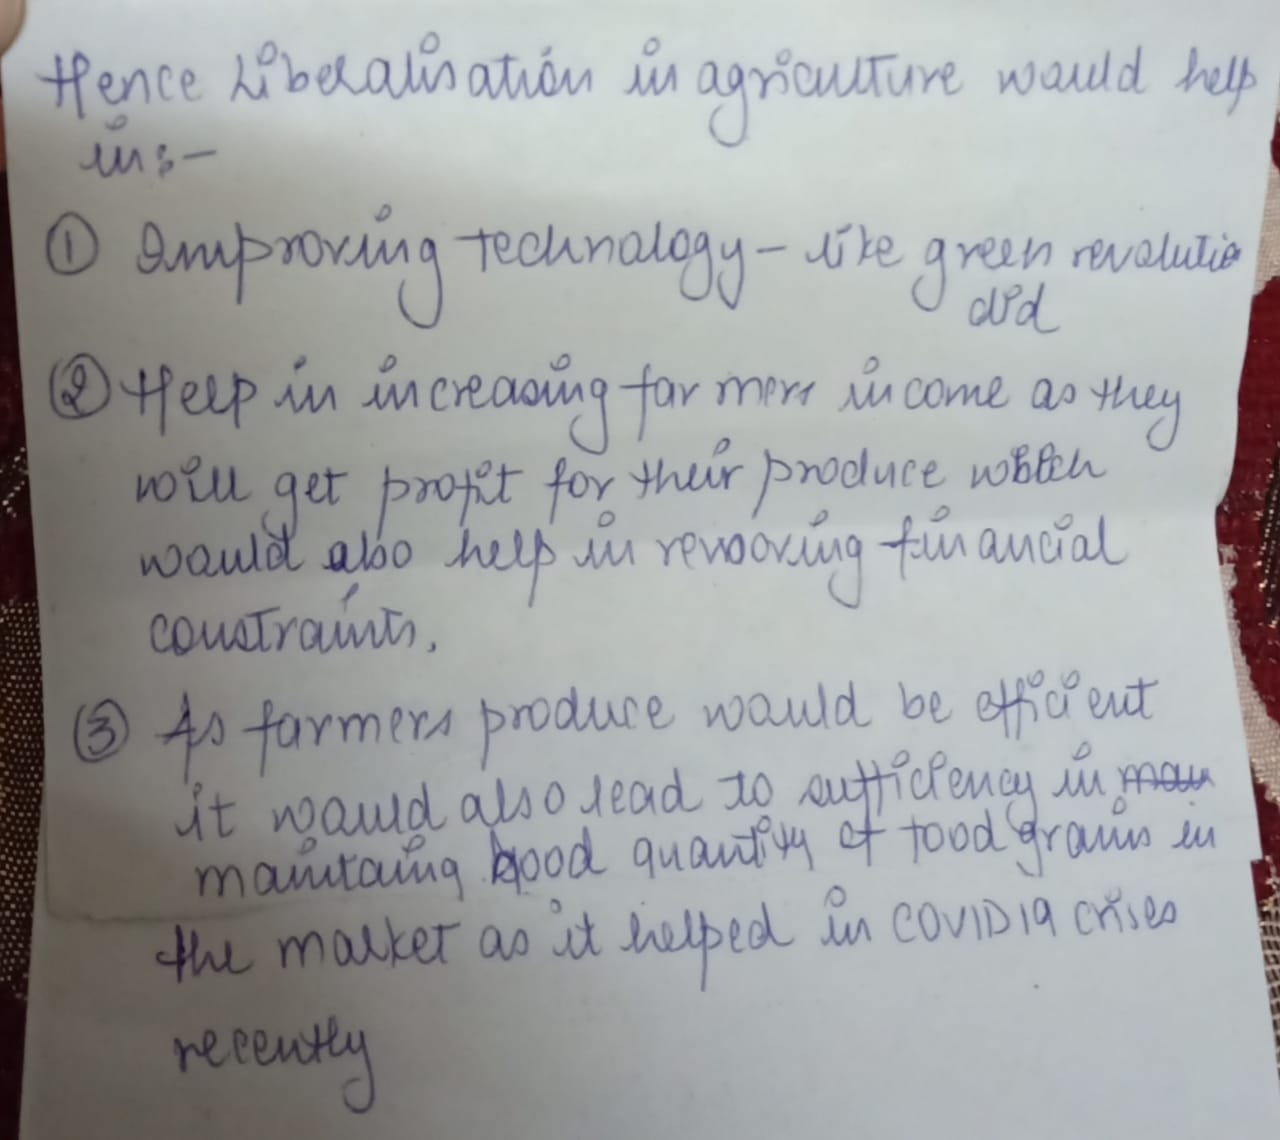 Hence Liberalisation in agriculture would help
in:-
① Improving technology - like green revolutio
did
② Help in increasing farmers income as they
will get profit for their produce which
would also help in removing financial
constraints.
③ As farmers produce would be efficient
it would also lead to sufficiency in
maintaing good quantity of food grains in
the market as it helped in COVID19 crises
recently